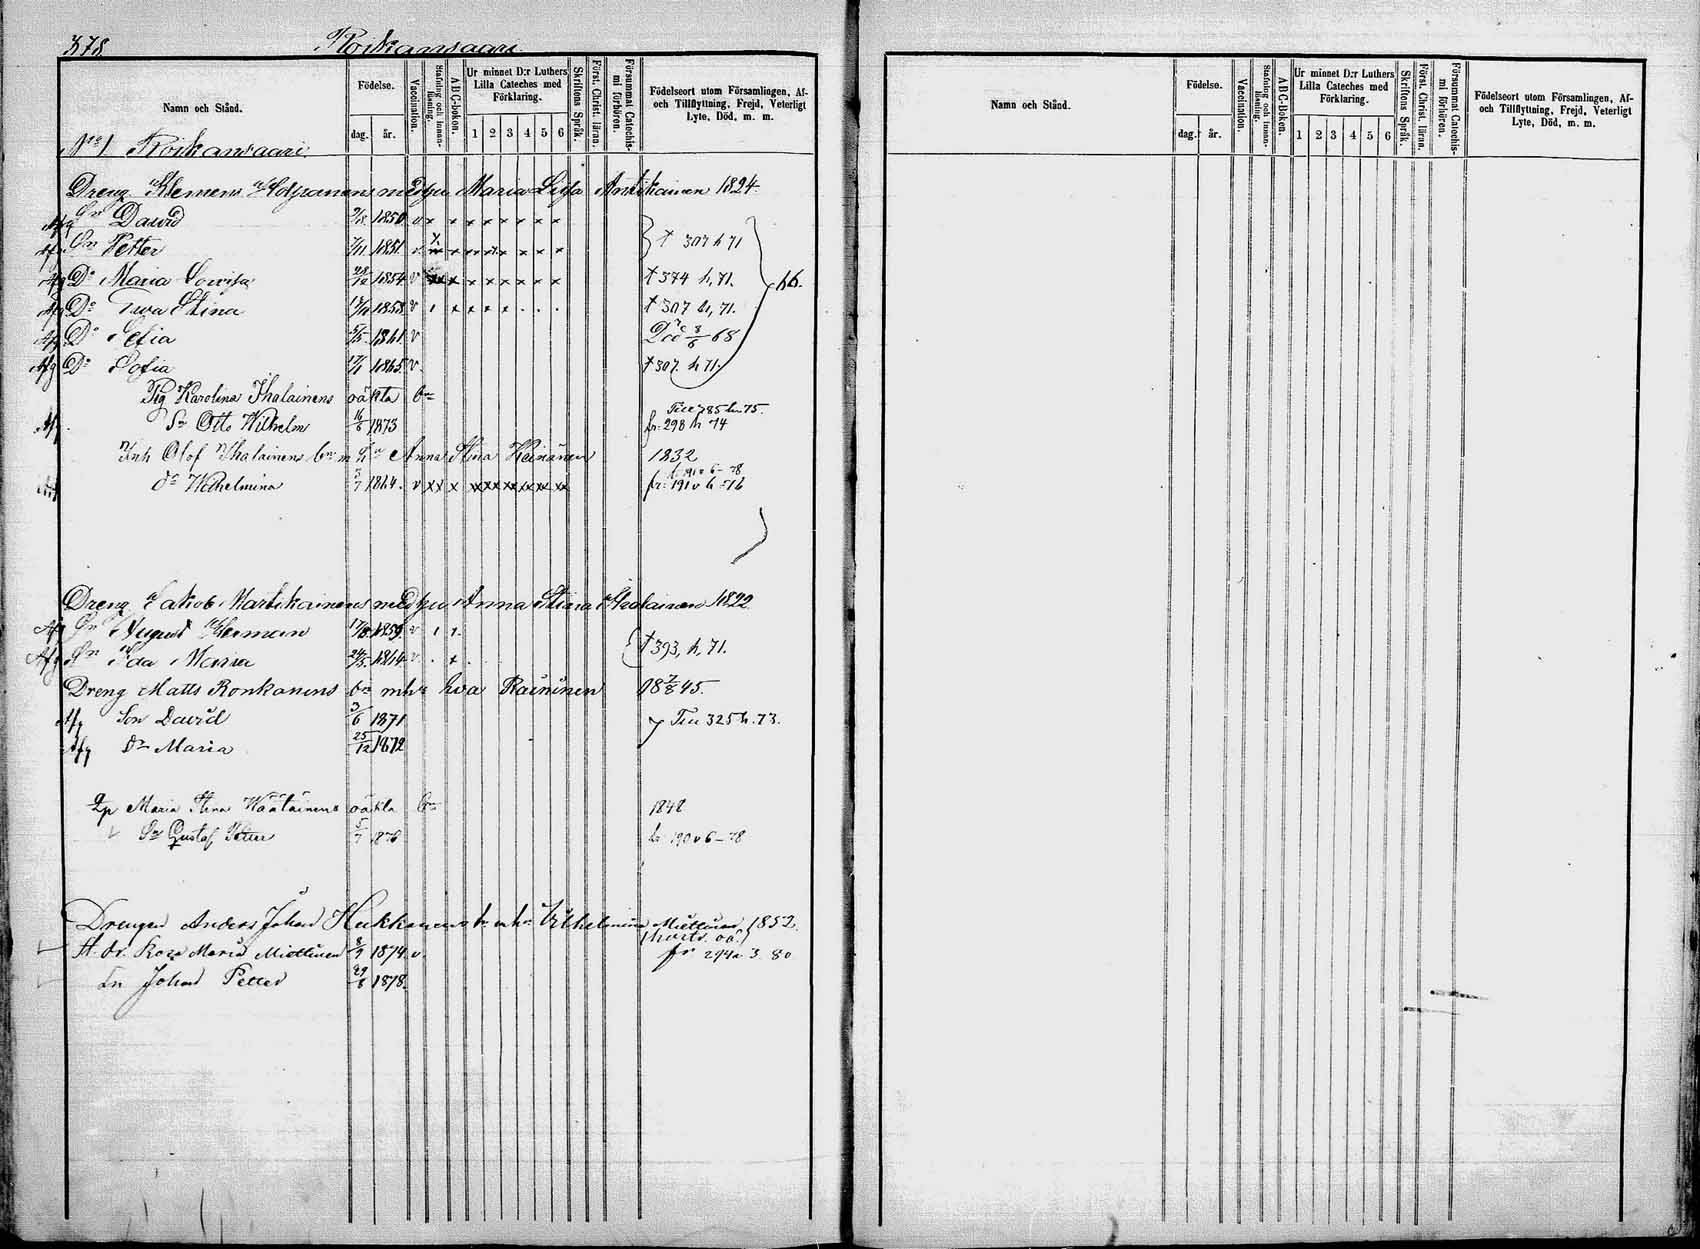 378. Roikansaari.
Namn och Stånd.
Födelse.
dag. år.
Vaccination.
Stafning och innan-läsning.
ABC-boken.
Ur minnet D:r Luthers Lilla Cateches med Förklaring.
1 2 3 4 5 6
Skriftens Språk.
Först. Christ. läran.
Försummat Catechis-mi förhören.
Födelseort utom Församlingen, Af- och Tillflyttning, Frejd, Veterligt Lyte, Död, m. m.
N:o 1 Roikansaari.
Dreng Klemens med hu Maria Lisa Antikainen 1824.
Afg Sn David 1850 v x x x x x x x x
Sn Petter 7/11 1851 v x x x x x x x † 307 h 71
Afg D:o Maria Lovisa 28/12 1854 v x x x x x x x † 374 h, 71. 66.
Afg D:o Ewa Stina 1858 v 1 x x x x . . . † 307 h, 71.
Afg D:o Sefia 5/5 1861 v Död 8/6 68
Afg D:o Sofia 17/1 1865 v. † 307. h 71.
Pig Karolina Ihalainens oäkta bn
Sn Otto Wilhelm 16/6 1873 Till 785 h 75. fr: 298 h 74
Inh Olof Ihalainens bn m h:u Anna Stina Heinänen 1832
d:r Wilhelmina 3/7 1864. v x x x x x x x x x fr: 191 v 6 76
Dreng Jakob Martikainens med hu Anna Stina Ihalainen 1822
Afg Sn August Herman 17/8 1859 v 1 1.
Afg Dn Ida Maria 24/5 1864 v . x † 393, h, 71.
Dreng Matts Ronkanens bn m h:u Eva Räinänen 18 7/8 45.
Afg Son David 3/6 1871 Till 325 h. 73.
Afg D:r Maria 25/12 1872
Maria Stina Wäätäinens oäkta bn 1848
Sn Gustaf Petter 5/7 1876 fr 190 v 6 – 78
Drengen Anders Johan Hukkanens bn m h:u Wilhelmina Miettinen 1852.
(hustr. oä.)
H. dr. Rosa Maria Miettinen 8/9 1874. v. fr 294a 3 80
Sn Johan Petter 29/8 1878.
Namn och Stånd.
Födelse.
dag. år.
Vaccination.
Stafning och innan-läsning.
ABC-boken.
Ur minnet D:r Luthers Lilla Cateches med Förklaring.
1 2 3 4 5 6
Skriftens Språk.
Först. Christ. läran.
Försummat Catechis-mi förhören.
Födelseort utom Församlingen, Af- och Tillflyttning, Frejd, Veterligt Lyte, Död, m. m.